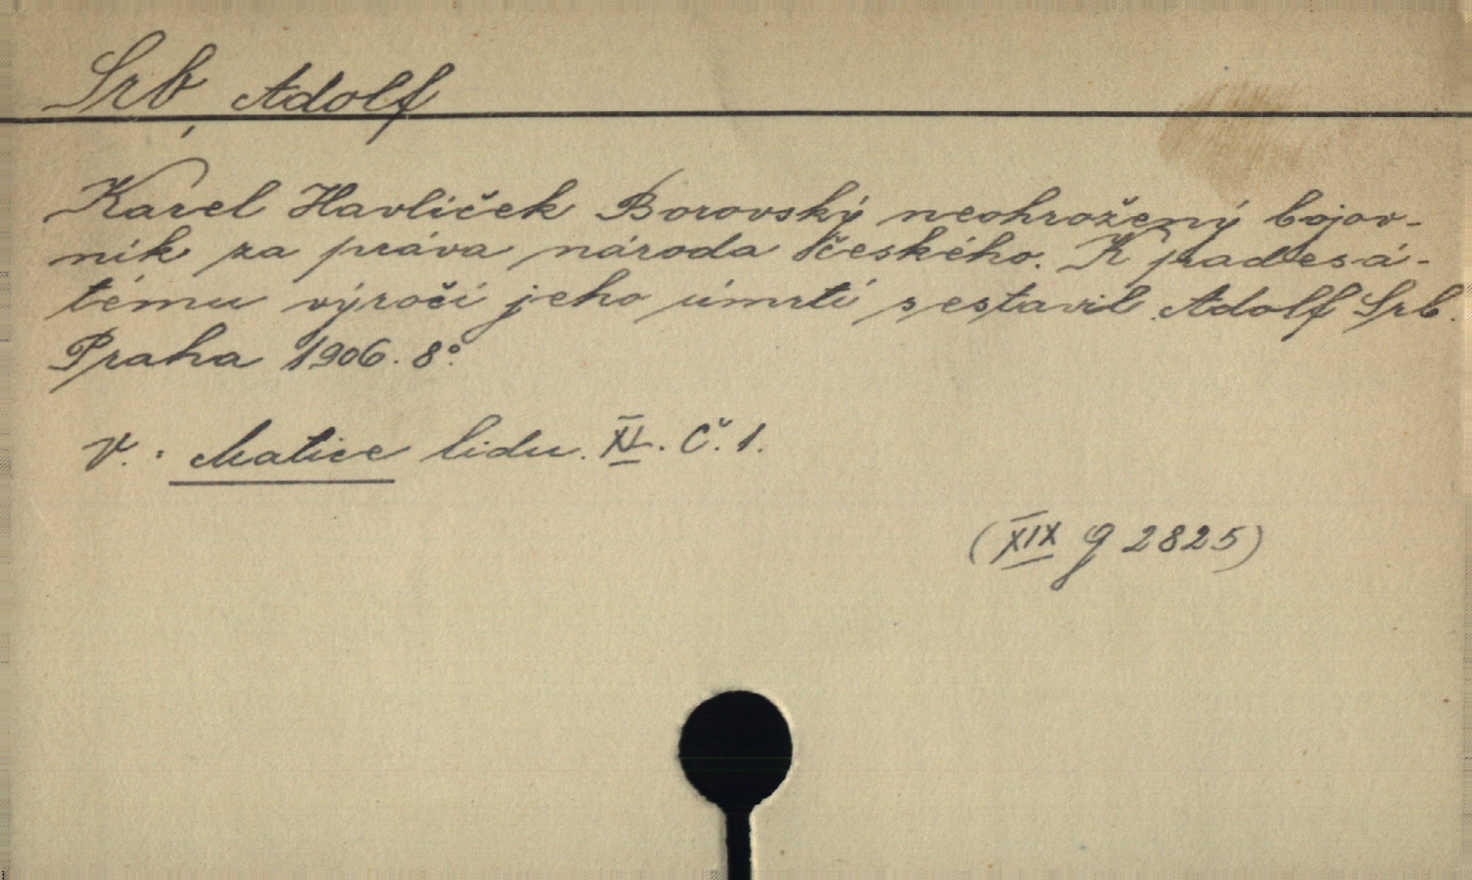 Srb, Adolf
Karel Havlíček Borovský neohrožený bojov-
ník za práva národa českého. K padesá-
tému výročí jeho úmrtí sestavil Adolf Srb.
Praha 1906. 8°.
V.: Matice lidu. XL. Č. 1.
(XIX G 2825)